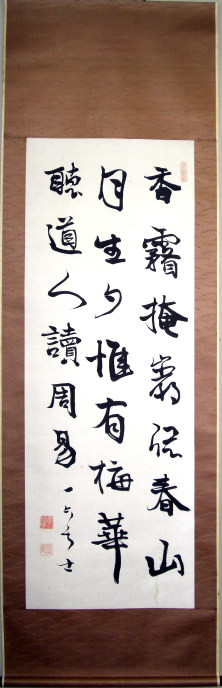 香霧掩窗深春山
月生夕惟有梅華
聽道人讀周易 一六居士